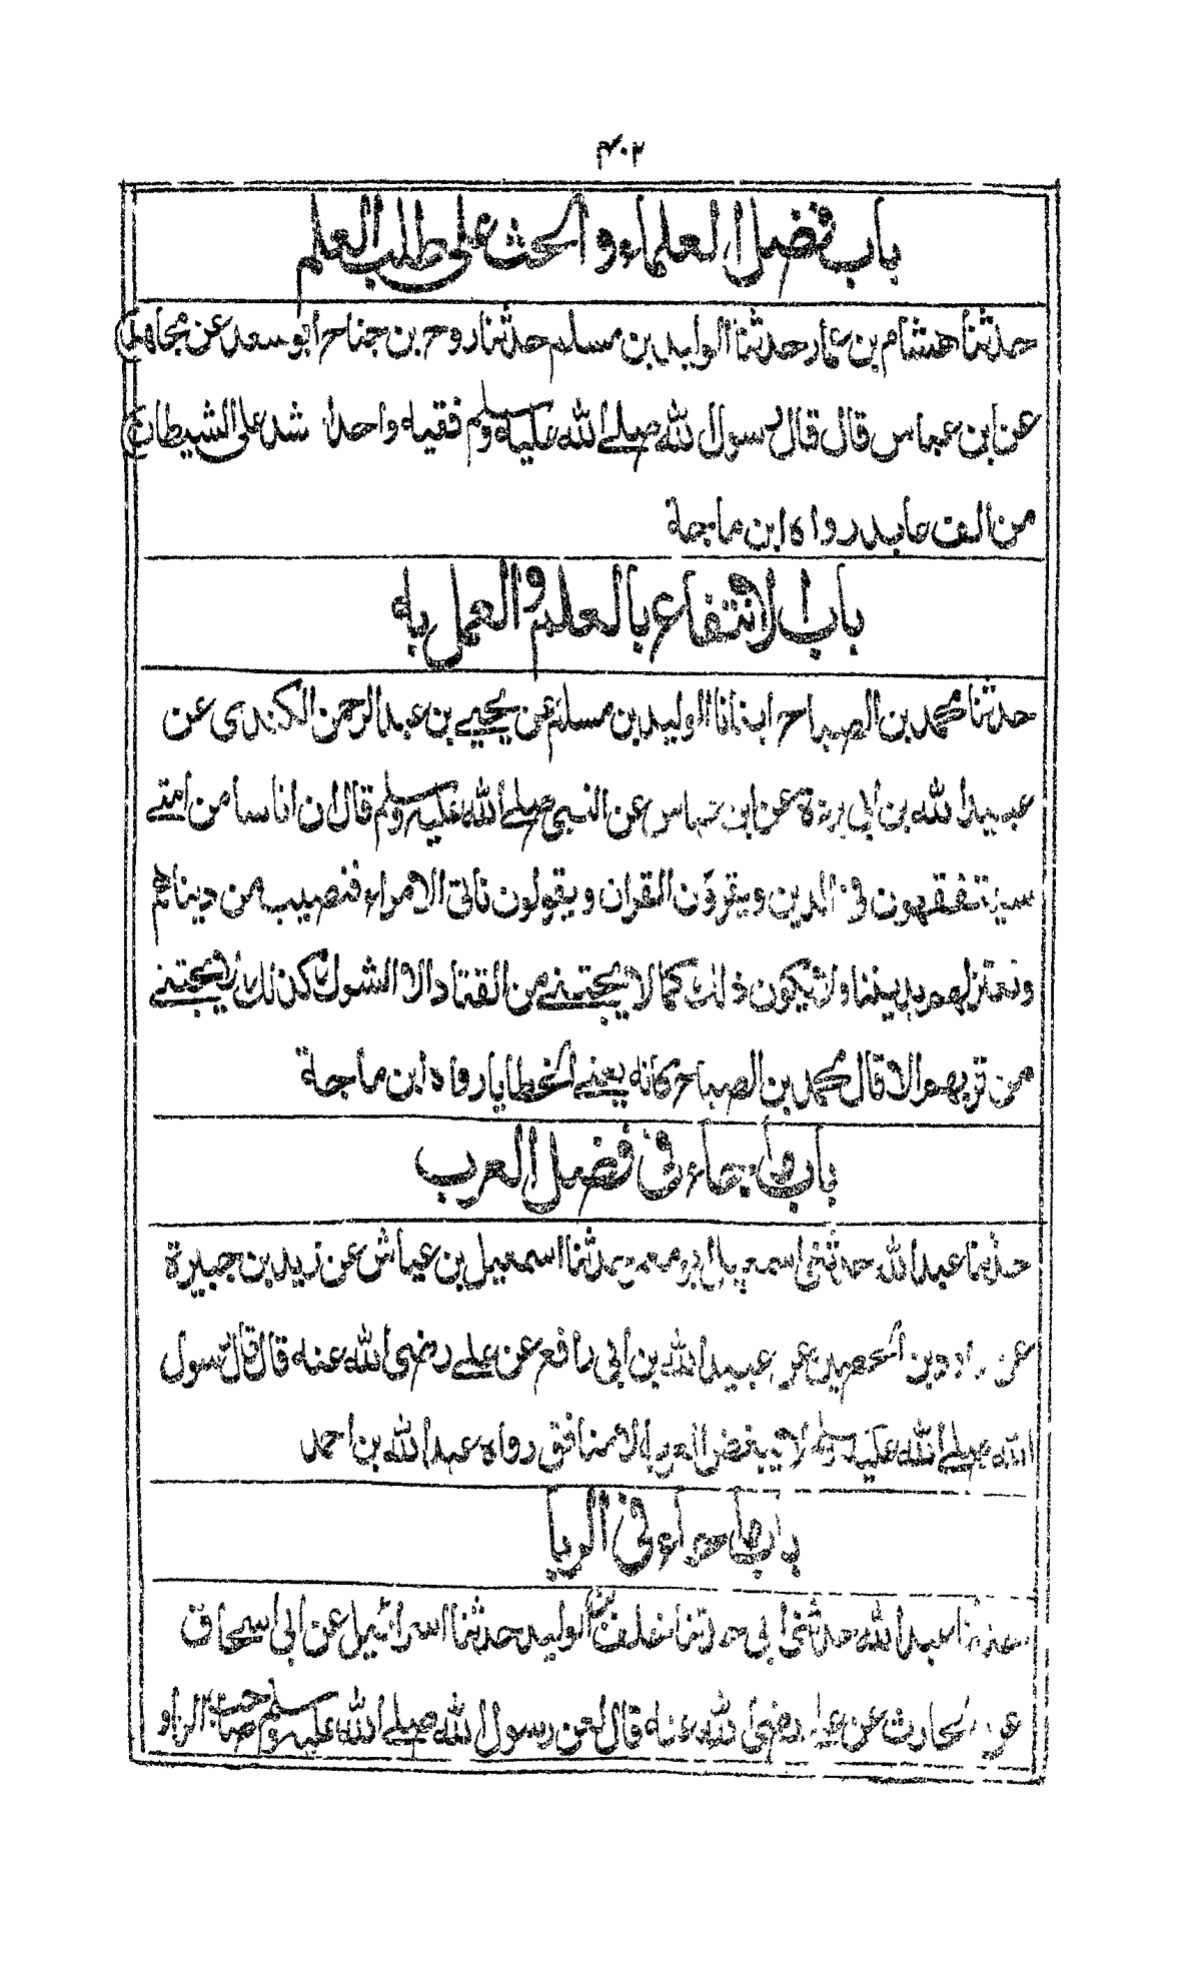 ۴۰۲
باب فضل العلماء والحث على طلب العلم
حدثنا هشام بن عمار حدثنا الوليد بن مسلم حدثنا روح بن جناح ابو سعد عن مجاهد
عن ابن عباس قال قال رسول الله صلے الله عليه وسلم فقيه واحد اشد على الشيطان
من الف عابد رواه ابن ماجة
باب الانتفاع بالعلم والعمل به
حدثنا محمد بن الصباح انبانا الوليد بن مسلم عن يحيے بن عبد الرحمن الكندى عن
عبيد الله بن ابى بردة عن ابن عباس عن النبى صلے الله عليه وسلم قال ان اناسا من امتے
سيتفقهون فى الدين ويقرؤن القران ويقولون ناتى الامراء فنصيب من دنياهم
ونعتزلهم بديننا ولا يكون ذلك كما لا يجتنے من القتاد الا الشوك كذلك لا يجتنے
من قربهم الا قال محمد بن الصباح كانه يعنے الخطايا رواه ابن ماجة
باب ما جاء فى فضل العرب
حدثنا عبد الله حدثنى اسمعيل ابو معمر حدثنا اسمعيل بن عياش عن زيد بن جبيرة
عن داود بن الحصين عن عبيد الله بن ابى رافع عن علے رضى الله عنه قال قال رسول
الله صلے الله عليه وسلم لا يبغض العرب الا منافق رواه عبد الله بن احمد
باب ما جاء فى الربا
حدثنا عبد الله حدثنى ابى حدثنا خلف بن الوليد حدثنا اسرائيل عن ابى اسحاق
عن الحارث عن علے رضى الله عنه قال لعن رسول الله صلے الله عليه وسلم صاحب الربا و